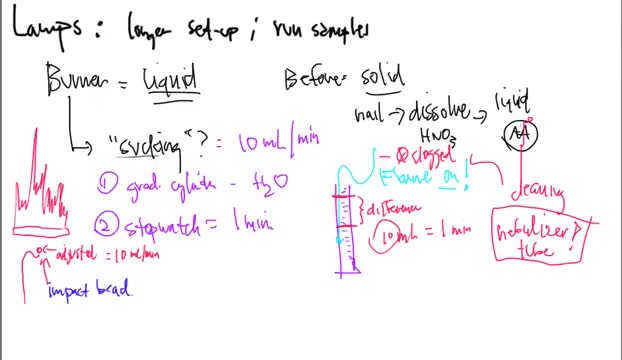 Lamps : longer set-up ; run samples
Burner = liquid
Before = solid
nail → dissolve → liquid
HNO3
AA
→ "sucking"? = 10 mL/min
① grad. cylinder - H2O
② stopwatch = 1 min
clogged
flame on!
} difference
10 mL = 1 min
cleaning
nebulizer?
tube
adjusted = 10 mL/min
impact bead.